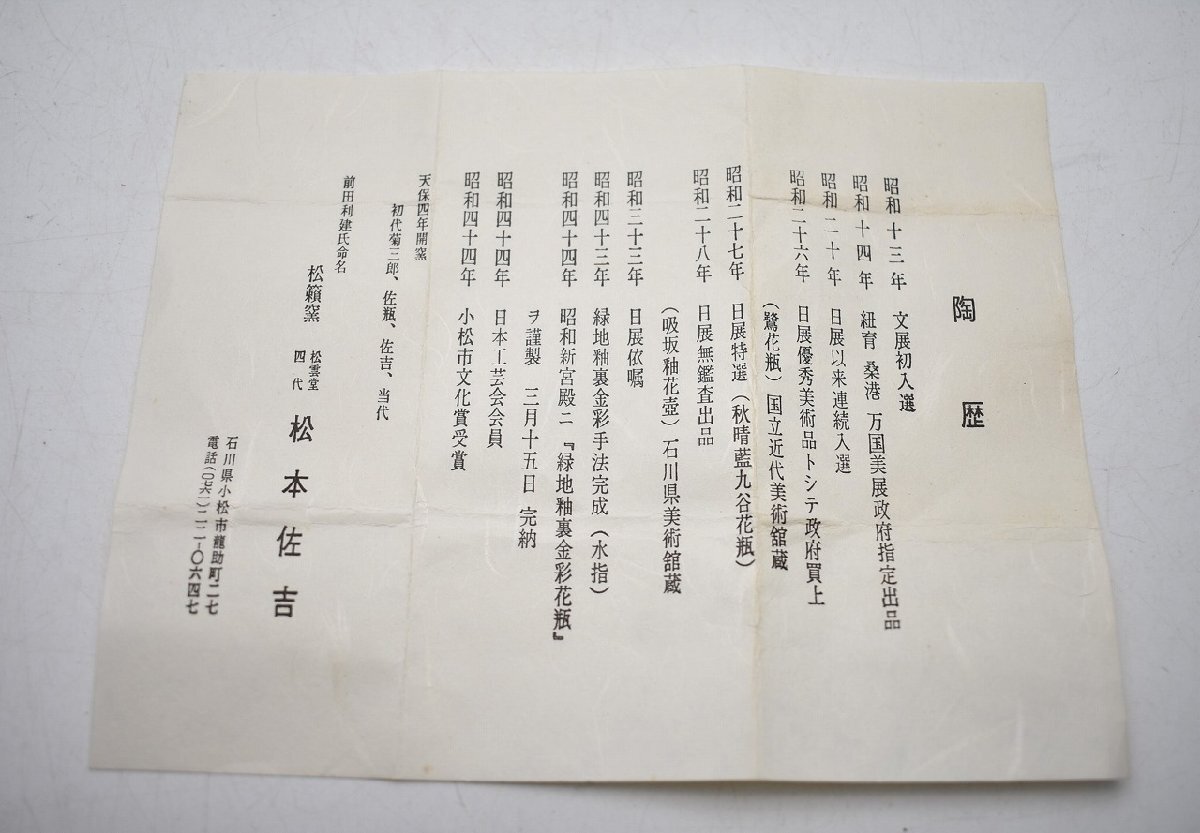 陶歴
昭和十三年 文展初入選
昭和十四年 紐育 桑港 万国美展政府指定出品
昭和二十年 日展以来連続入選
昭和二十六年 日展優秀美術品トシテ政府買上
(鷺花瓶)国立近代美術館蔵
昭和二十七年 日展特選(秋晴藍九谷花瓶)
昭和二十八年 日展無鑑査出品
(吸坂釉花壺)石川県美術館蔵
昭和三十三年 日展依嘱
昭和四十三年 緑地釉裏金彩手法完成(水指)
昭和四十四年 昭和新宮殿ニ『緑地釉裏金彩花瓶』
ヲ謹製 三月十五日 完納
昭和四十四年 日本工芸会会員
昭和四十四年 小松市文化賞受賞
天保四年開窯
初代菊三郎、佐瓶、佐吉、当代
前田利建氏命名
松籟窯 松雲堂
四代 松本佐吉
石川県小松市龍助町二七
電話(〇七六一)二二-〇六四七